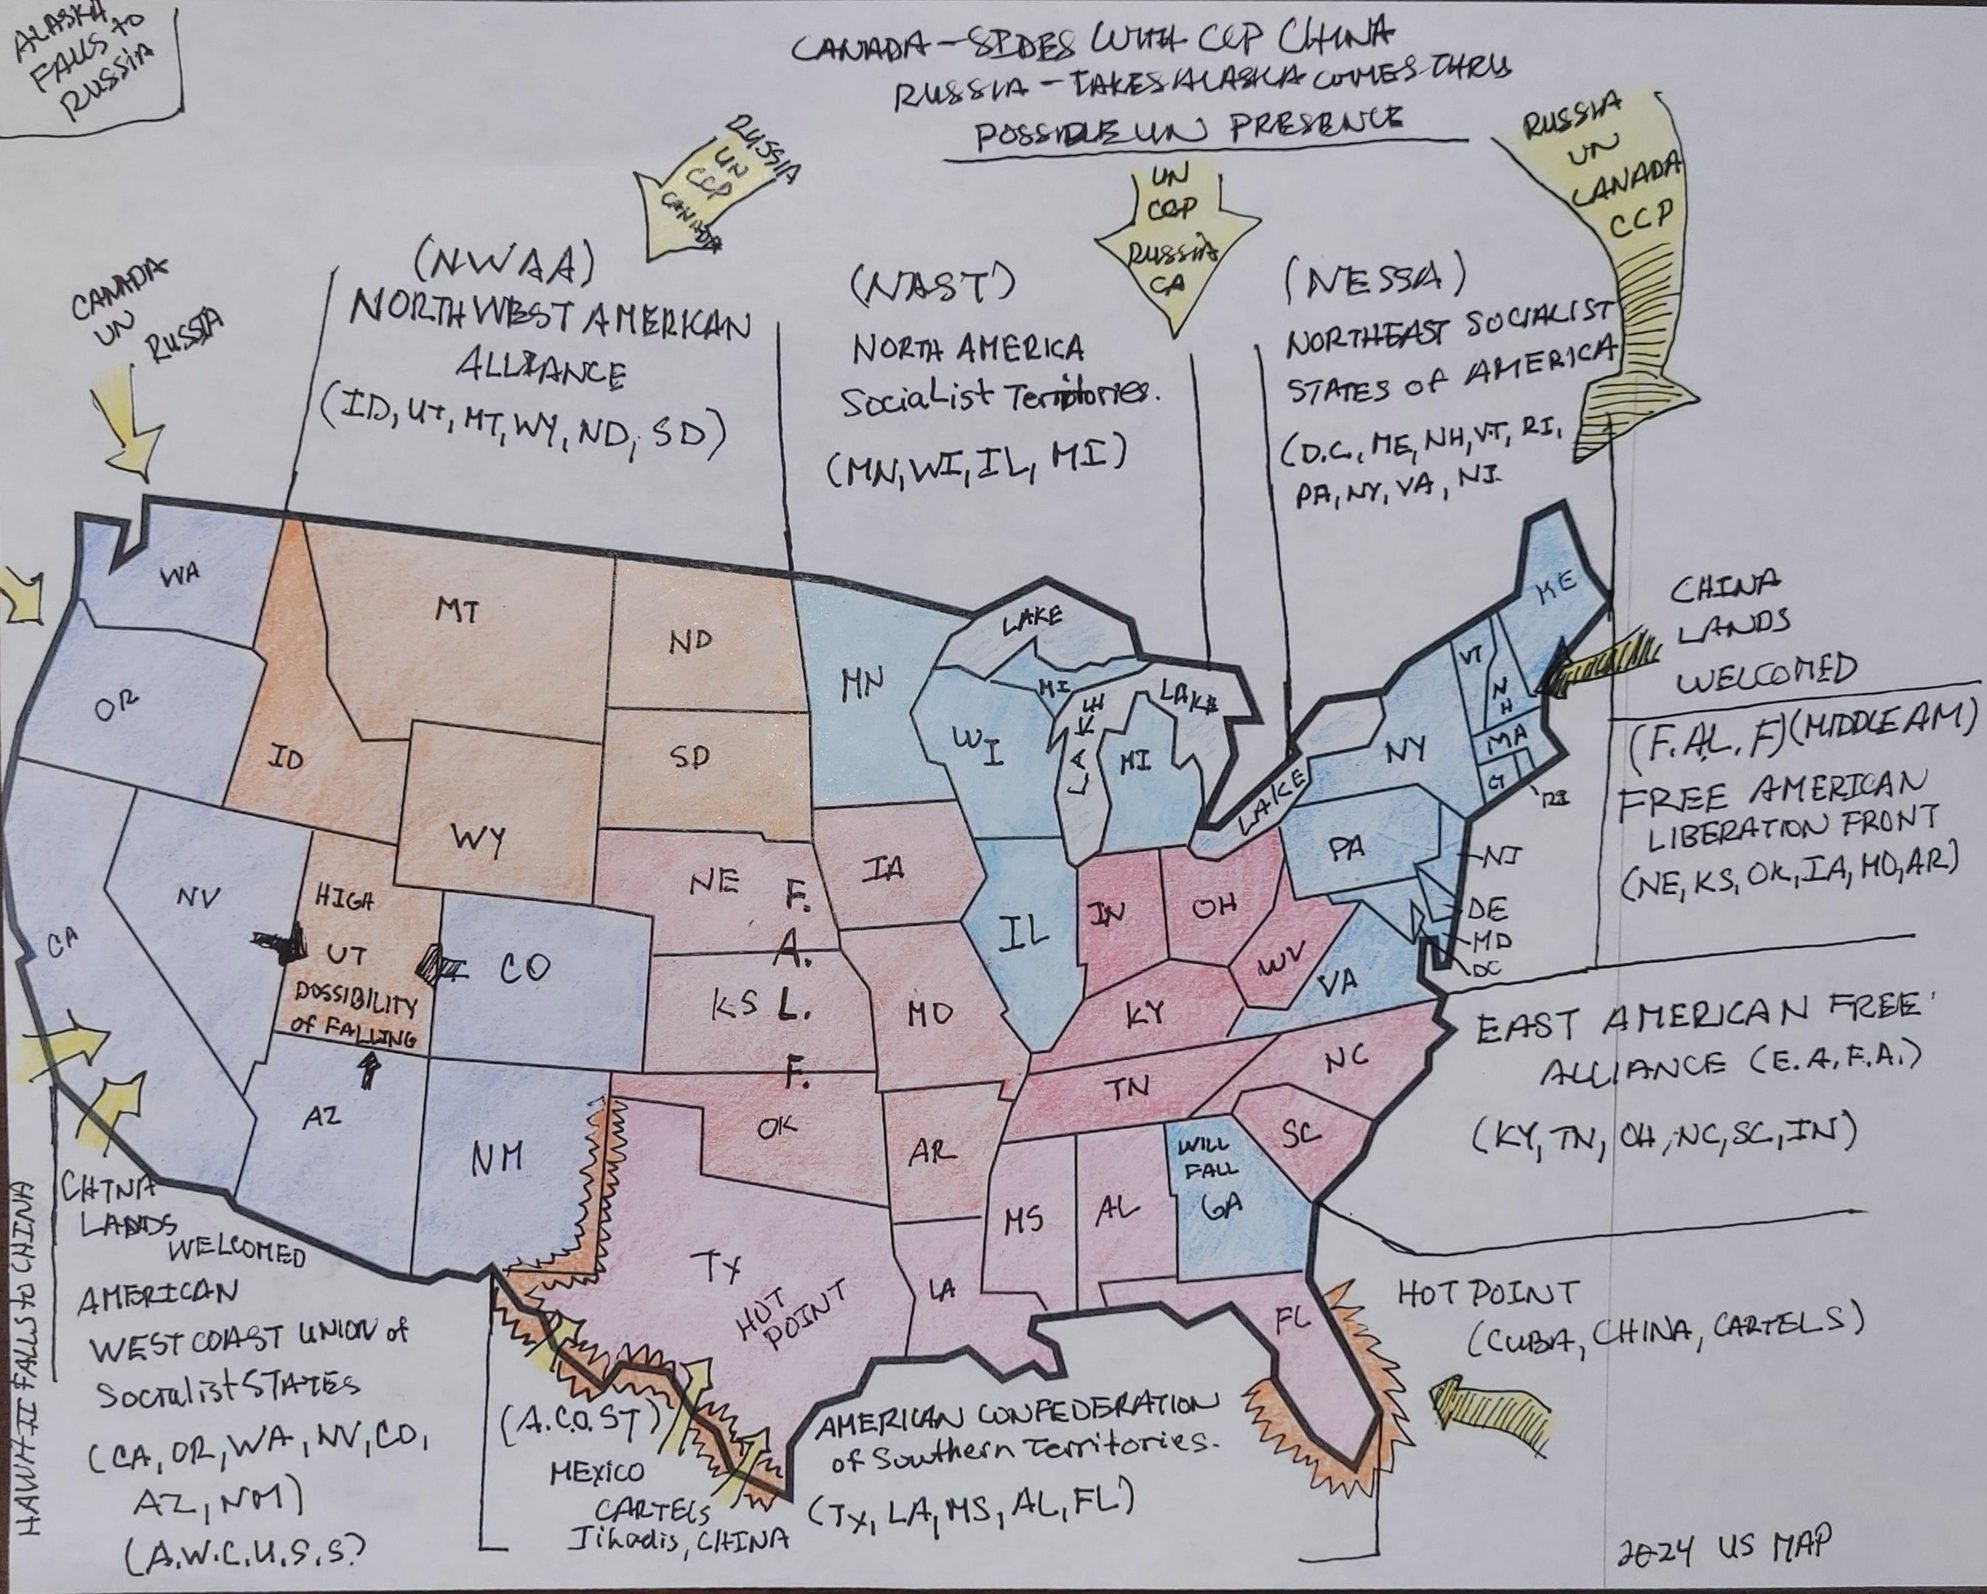 ALASKA
FALLS to
RUSSIA
CANADA - SIDES WITH CCP CHINA
RUSSIA - TAKES ALASKA COMES THRU
POSSIBLE UN PRESENCE
RUSSIA
UN
CCP
CANADA
UN
CCP
RUSSIA
CA
RUSSIA
UN
CANADA
CCP
CANADA
UN
RUSSIA
(NWAA)
NORTHWEST AMERICAN
ALLIANCE
(ID, UT, MT, WY, ND, SD)
(NAST)
NORTH AMERICA
Socialist Territories.
(MN, WI, IL, MI)
(NESSA)
NORTHEAST SOCIALIST
STATES of AMERICA
(D.C., ME, NH, VT, RI,
PA, NY, VA, NJ.
WA
OR
CA
NV
ID
MT
WY
ND
SD
HIGH
UT
POSSIBILITY
of FALLING
CO
AZ
NM
NE
KS
OK
F.
A.
L.
F.
IA
MO
AR
MN
WI
IL
MI
MI
LAKE
LAKE
LAKE
LAKE
IN
OH
WV
KY
TN
VA
NC
SC
WILL
FALL
GA
MS
AL
LA
FL
TX
HOT
POINT
NY
PA
VT
NH
ME
MA
CT
RI
NJ
DE
MD
DC
CHINA
LANDS
WELCOMED
(F. AL. F) (MIDDLE AM)
FREE AMERICAN
LIBERATION FRONT
(NE, KS, OK, IA, MO, AR)
EAST AMERICAN FREE
ALLIANCE (E.A.F.A.)
(KY, TN, OH, NC, SC, IN)
HOT POINT
(CUBA, CHINA, CARTELS)
HAWAII FALLS to CHINA
CHINA
LANDS
WELCOMED
AMERICAN
WEST COAST UNION of
Socialist STATES
(CA, OR, WA, NV, CO,
AZ, NM)
(A.W.C.U.S.S?
(A.C.O.ST)
MEXICO
CARTELS
Jihadis, CHINA
AMERICAN CONFEDERATION
of Southern Territories.
(TX, LA, MS, AL, FL)
2024 US MAP